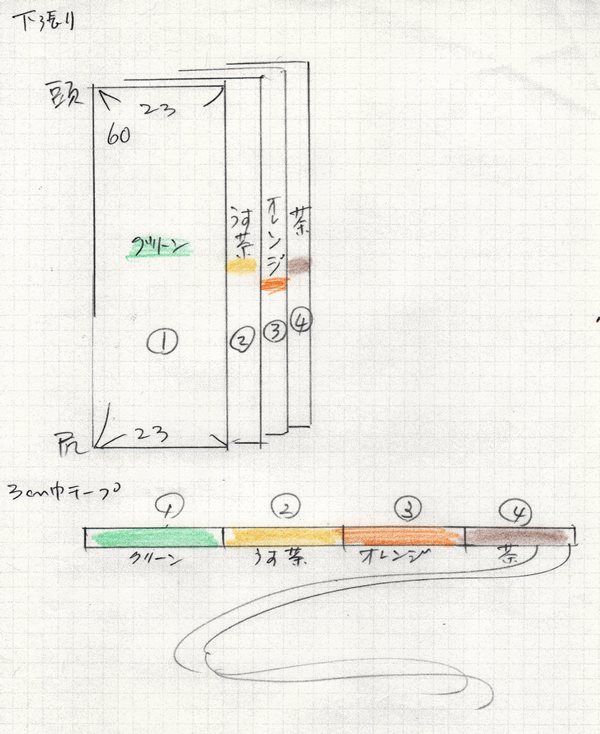 下張り
頭
23
60
グリーン
うす茶
オレンジ
茶
①
②
③
④
尻
23
3cm巾テープ
①
②
③
④
グリーン
うす茶
オレンジ
茶